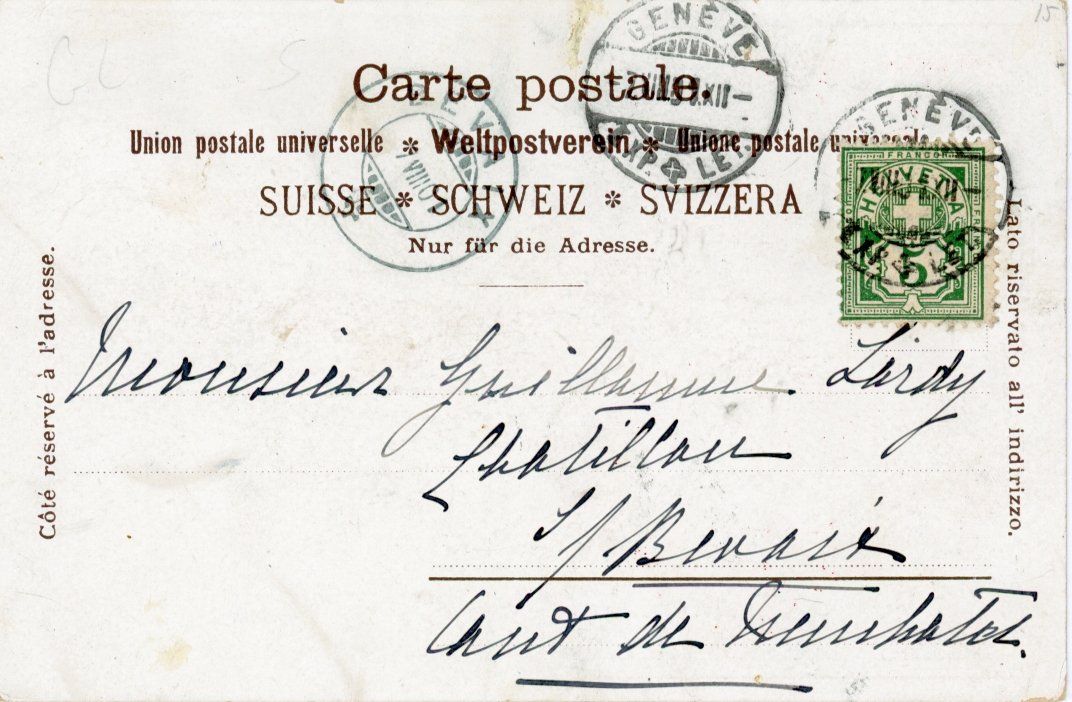 15
GL S
GENÈVE
Carte postale.
EXP. & LET.
Union postale universelle * Weltpostverein * Unione postale universale
SUISSE * SCHWEIZ * SVIZZERA
Nur für die Adresse.
GENÈVE
FRANCO
HELVETIA
5
Côté réservé à l'adresse.
Lato riservato all' indirizzo.
Monsieur Guillaume Lardy
Chatillon
s/ Bevaix
Cant de Neuchatel.